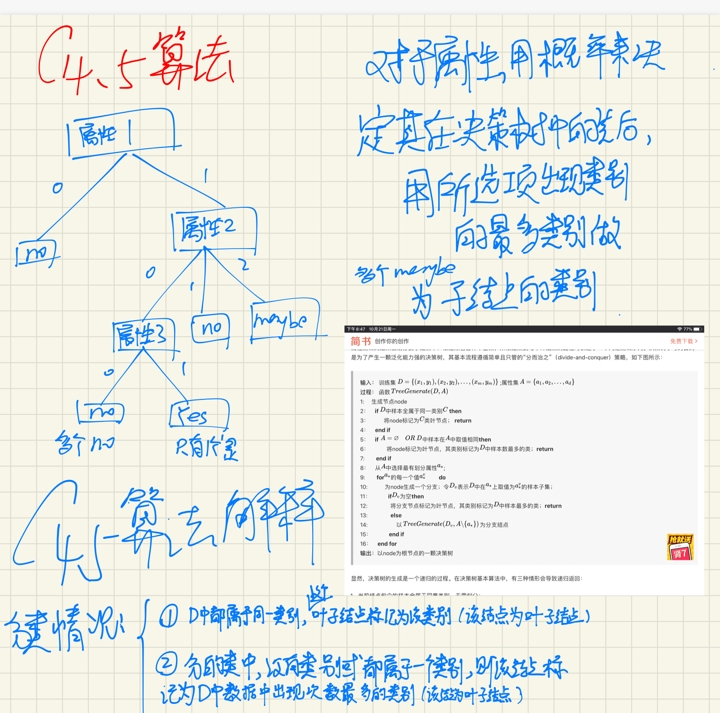 C4.5算法
对于属性,用概率来决
定其在决策树中的先后,
用所选项出现类别
的最多类别做
为子结点的类别
多个maybe
属性1
0
1
no
属性2
0
1
2
属性3
no
maybe
0
1
no
Yes
多个no
只有个是
下午8:47 10月21日周一
77%
简书 创作你的创作
免费下载>
是为了产生一颗泛化能力强的决策树,其基本流程遵循简单且只管的“分而治之”(divide-and-conquer)策略,如下图所示:
输入: 训练集 D = {(x₁, y₁), (x₂, y₂), ..., (xₘ, yₘ)} ;属性集 A = {a₁, a₂, ..., a_d}
过程: 函数 TreeGenerate(D, A)
1: 生成节点node
2: if D中样本全属于同一类别C then
3: 将node标记为C类叶节点; return
4: end if
5: if A = ∅ OR D中样本在A中取值相同then
6: 将node标记为叶节点,其类别标记为D中样本数最多的类; return
7: end if
8: 从A中选择最有划分属性a*;
9: for a*的每一个值a*ᵛ do
10: 为node生成一个分支;令Dᵥ表示D中在a*上取值为a*ᵛ的样本子集;
11: if Dᵥ为空then
12: 将分支节点标记为叶节点,其类别标记为D中样本最多的类; return
13: else
14: 以 TreeGenerate(Dᵥ, A\{a*})为分支结点
15: end if
16: end for
输出: 以node为根节点的一颗决策树
抢就送
显然,决策树的生成是一个递归的过程。在决策树基本算法中,有三种情形会导致递归返回:
C4.5算法的解释
分类情况:
① D中都属于同一类别,此叶子结点标记为该类别(该结点为叶子结点)
② 分的类中,没有类别或都属于一个类别,则该结点标
记为D中数据中出现次数最多的类别(该结点为叶子结点)